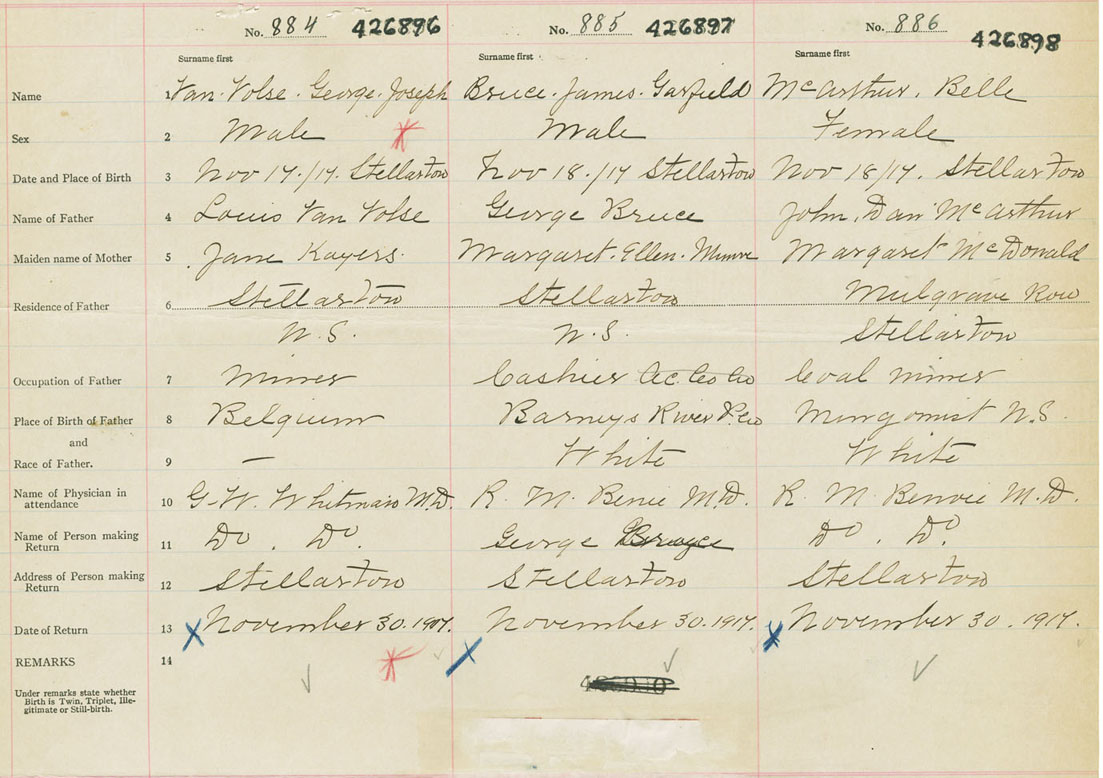 No. 884 426896 No. 885 426897 No. 886 426898
Surname first Surname first Surname first
Name 1 Van Volse. George. Joseph Bruce. James. Garfield McArthur. Belle
Sex 2 Male Male Female
Date and Place of Birth 3 Nov 17./17. Stellarton Nov 18./17 Stellarton Nov 18/17. Stellarton
Name of Father 4 Louis Van Volse George Bruce John, Dan McArthur
Maiden name of Mother 5 Jane Kayers. Margaret. Ellen. Munro Margaret McDonald
Residence of Father 6 Stellarton Stellarton Mulgrave Row
N.S. N.S. Stellarton
Occupation of Father 7 Miner Cashier Coal miner
Place of Birth of Father 8 Belgium Barneys River P.Co N.S.
and
Race of Father. 9 — White White
Name of Physician in
attendance 10 G. W. Whitman M.D. R. M. Benie M.D. R. M Benvie M.D.
Name of Person making
Return 11 Do. Do. George Bruce Do. Do.
Address of Person making
Return 12 Stellarton Stellarton Stellarton
Date of Return 13 November 30. 1917. November 30. 1917. November 30. 1917.
REMARKS 14
Under remarks state whether
Birth is Twin, Triplet, Ille-
gitimate or Still-birth.